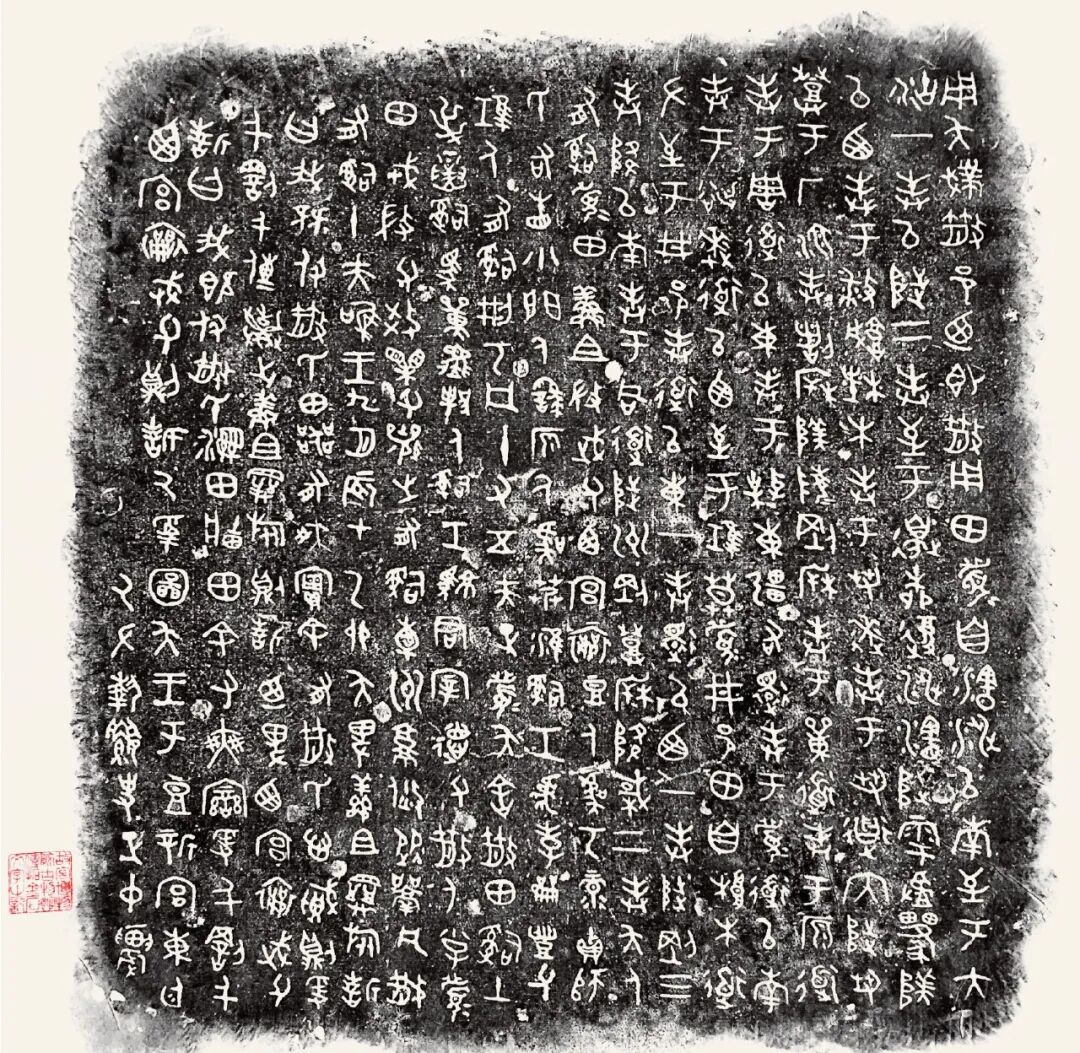 用夨散邑乃即散用田眉自瀗涉以南至于大
沽一封以陟二封至于邊柳復涉瀗陟雩陕
以西封于城楮木封于芻逨封于芻道内陟芻
登于厂湶封諸陕陵剛封于單道封于原道
封于周道以東封于東疆右還封于眉道以南
封于逨道以西至于莫眉井邑田自根木道
左至于井邑封道以東一封還以西一封陟剛三
封降以南封于同道陟州剛登降棫二封夨人
有司眉田鮮且微武父西宮襄豆人虞丂彔貞師
氏右眚小門人繇原人虞艿淮司工虎孝龠豐父
人有司刑丂凡十又五夫正眉夨舍散田司土
屰寅司馬人司工君宰德父散人小子眉
田戎微父效父襄之有司橐州焂從凡散
有司十夫唯王九月辰才乙卯夨卑鮮且旅誓
曰我既付散氏田器有爽實余有散氏心賊則爰
千罰千傳棄之鮮且旅則誓乃卑西宮襄武父
誓曰我既付散氏濕田田余有爽變爰千罰千
西宮襄武父則誓厥受圖夨王于豆新宮東廷
厥左執史正中農